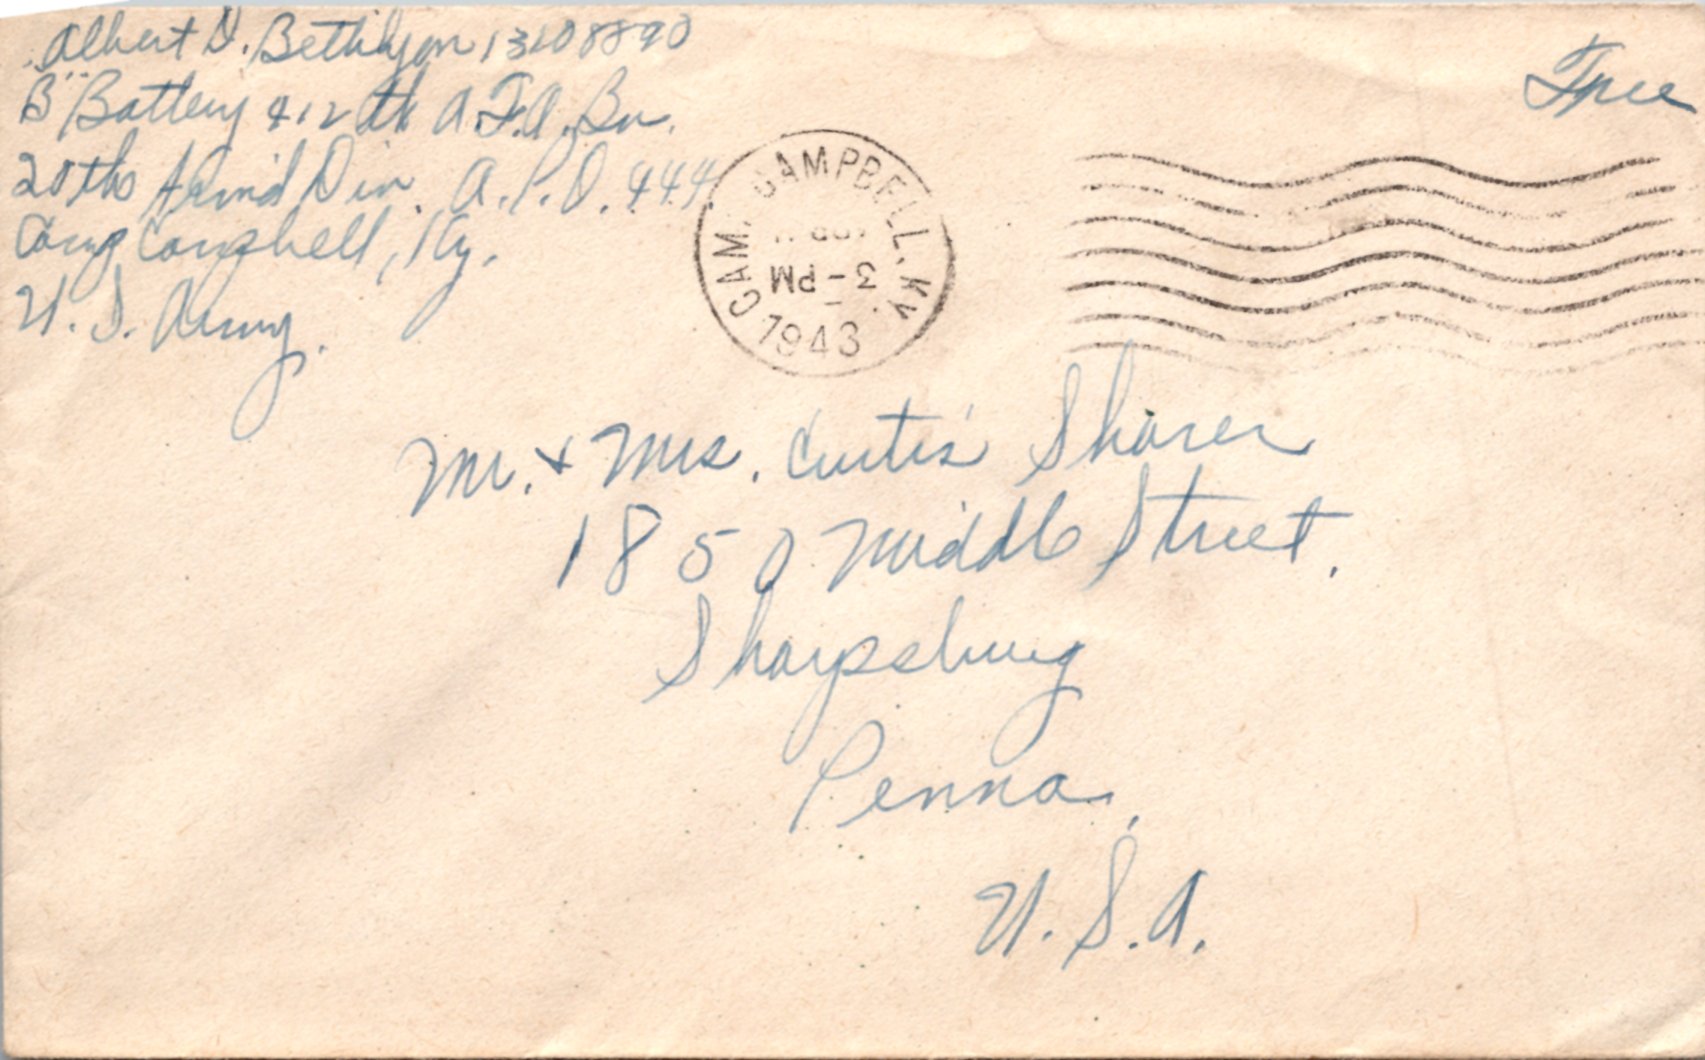 Albert D. Bethlyon 13108890
"B" Battery 412th A.F.A. Bn.
20th Arm'd Div. A.P.O. 444
Camp Campbell, Ky.
U.S. Army.
Free
CAMP CAMPBELL, KY.
3 - PM
1943
Mr. & Mrs. Curtis Sharer
1850 Middle Street.
Sharpsburg
Penna.
U.S.A.